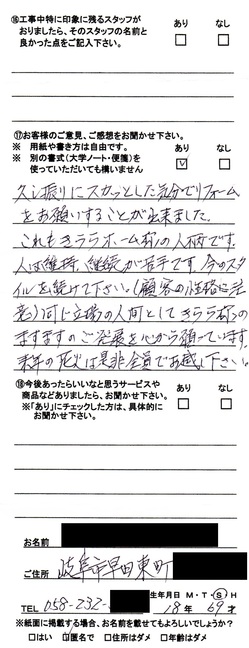 ⑯工事中特に印象に残るスタッフが
おりましたら、そのスタッフの名前と
良かった点をご記入下さい。
あり なし
⑰お客様のご意見、ご感想をお聞かせ下さい。
※ 用紙や書き方は自由です。
※ 別の書式(大学ノート・便箋)を
使っていただいても構いません
あり なし
久し振りにスカッとした気分でリフォーム
をお願いすることが出来ました。
これもきららホーム様の人柄です。
人は維持、継続が苦手です。今のスタ
イルを続けて下さい。(顧客の性格は
)同じ立場の人間としてきらら様の
ますますのご発展を心から願っています。
来年の花火は是非全員でお越し下さい。
⑱今後あったらいいなと思うサービスや
商品などありましたら、お聞かせ下さい。
※「あり」にチェックした方は、具体的に
お聞かせ下さい。
あり なし
お名前
ご住所 岐阜市早田東町
生年月日 M・T・Ⓢ・H
TEL 058-232- 18年 69才
※紙面に掲載する場合、お名前を載せてもよろしいでしょうか?
□はい ☑匿名で □住所はダメ □年齢はダメ